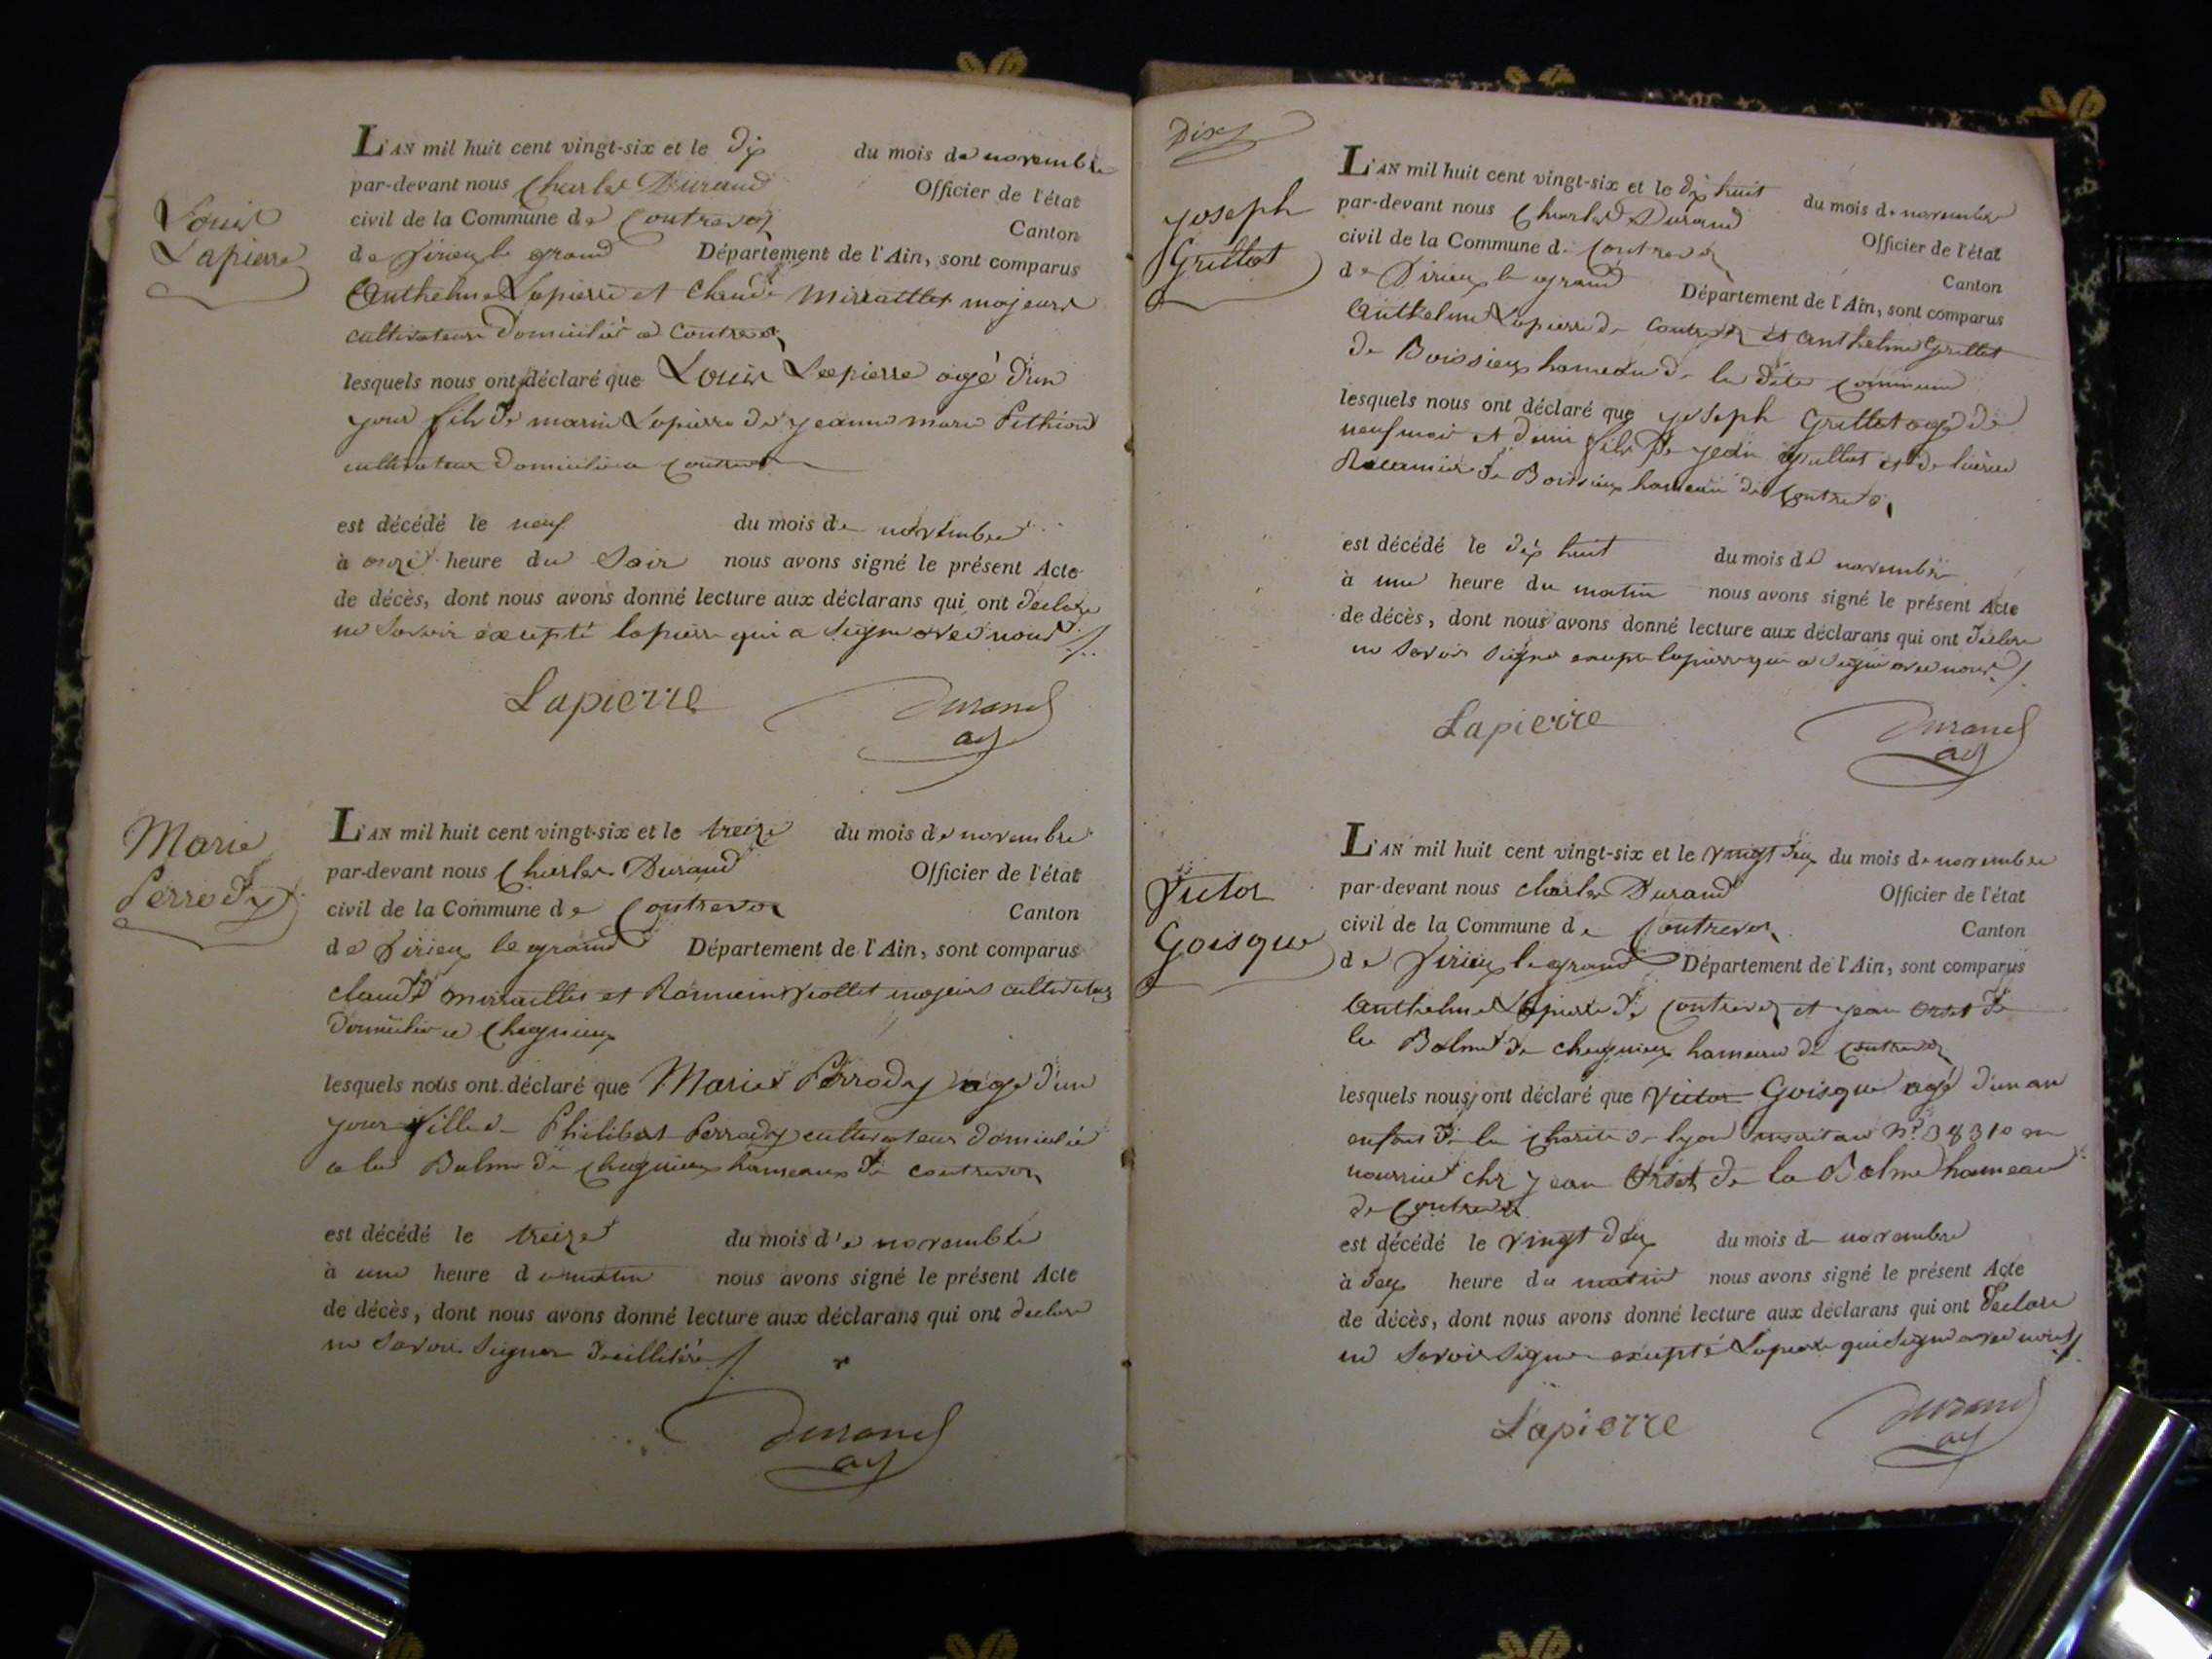 Louis
Lapierre
L'AN mil huit cent vingt-six et le dix du mois de novembre
par-devant nous Charles Durand Officier de l'état
civil de la Commune de Contrevoz Canton
de Virieux le grand Département de l'Ain, sont comparus
Anthelme Lapierre et Claude Miraillet majeurs
cultivateurs domiciliés a Contrevoz
lesquels nous ont déclaré que Louis Lapierre agé d'un
jour fils de marin Lapierre de jeanne marie Pithion
cultivateur domicilié a Contrevoz
est décédé le neuf du mois de novembre
à onze heure du Soir nous avons signé le présent Acte
de décès, dont nous avons donné lecture aux déclarans qui ont declare
ne savoir excepté lapierre qui a signé avec nous
Lapierre Durand
adj
Marie
Perrody
L'AN mil huit cent vingt-six et le treize du mois de novembre
par-devant nous Charles Durand Officier de l'état
civil de la Commune de Contrevoz Canton
de Virieux le grand Département de l'Ain, sont comparus
claude miraillet et majeurs cultivateurs
domicilié a Chegnieux
lesquels nous ont déclaré que Marie Perrody agé d'un
jour fille de Philibert Perrody cultivateur domicilié
a la Balme de chegnieux hameaux de contrevoz
est décédé le treize du mois de novembre
à une heure du matin nous avons signé le présent Acte
de décès, dont nous avons donné lecture aux déclarans qui ont declare
ne savoir signer
Durand
adj
Dix
joseph
Grillet
L'AN mil huit cent vingt-six et le dix huit du mois de novembre
par-devant nous Charles Durand Officier de l'état
civil de la Commune de Contrevoz Canton
de Virieux le grand Département de l'Ain, sont comparus
Anthelme Lapierre de Contrevoz et anthelme Grillet
de Boissieux hameau de la dite commune
lesquels nous ont déclaré que joseph Grillet agé de
neuf mois et demi fils de jean Grillet et de
Recamier de Boissieux hameau de Contrevoz
est décédé le dix huit du mois de novembre
à une heure du matin nous avons signé le présent Acte
de décès, dont nous avons donné lecture aux déclarans qui ont declare
ne savoir signer excepte lapierre qui a signé avec nous
Lapierre Durand
adj
Victor
Goisque
L'AN mil huit cent vingt-six et le vingt deux du mois de novembre
par-devant nous charles Durand Officier de l'état
civil de la Commune de Contrevoz Canton
de Virieux le grand Département de l'Ain, sont comparus
Anthelme Lapierre de Contrevoz et jean Orset de
la Balme de chegnieux hameau de Contrevoz
lesquels nous ont déclaré que Victor Goisque agé d'un an
enfant de la charité de lyon inscrit au N.º 38310 en
nourrice chez jean Orset de la Balme hameau
de Contrevoz
est décédé le vingt deux du mois de novembre
à deux heure du matin nous avons signé le présent Acte
de décès, dont nous avons donné lecture aux déclarans qui ont declare
ne savoir signer excepté Lapierre qui signe avec nous
Lapierre Durand
adj